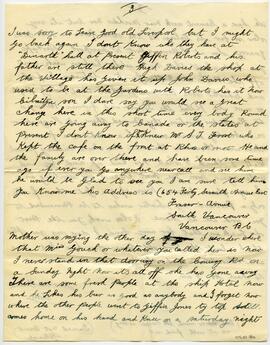 3
I was sorry to leave good old Liverpool but I might
go back again I dont know who they have at
hall at Present Griffen Roberts and his
father are still there Hugh Davies the shop at
the village has given it up John Davies who
used to be at the Gardens with Roberts his it now
son I dare say you would see a great
change here in this short time every body Round
here are going away to Canada or the States at
Present I dont know if you knew Mr S. T. Frost who
kept the cafe on the front at Rhos or not He and
the family are over there and have been some time
ago if ever you go anywhere near call and see him
he would be glad to see you I am sure tell him
you know me his address is (654 Forty Seventh Avenue East
Fraser Avenue
South Vancouver
Vancouver B.C.
Mother was saying the other day I wonder where
that Miss Gough or whatever you called her is now
I never stand in that doorway on the Conway Rd on
a Sunday night now it all off she has gone away
There are some fresh people at the ship Hotel now
and he likes his beer as good as anybody and I forget now
where the other people went to Griffen Jones try tip
comes home on his hand and knees on a saturday night